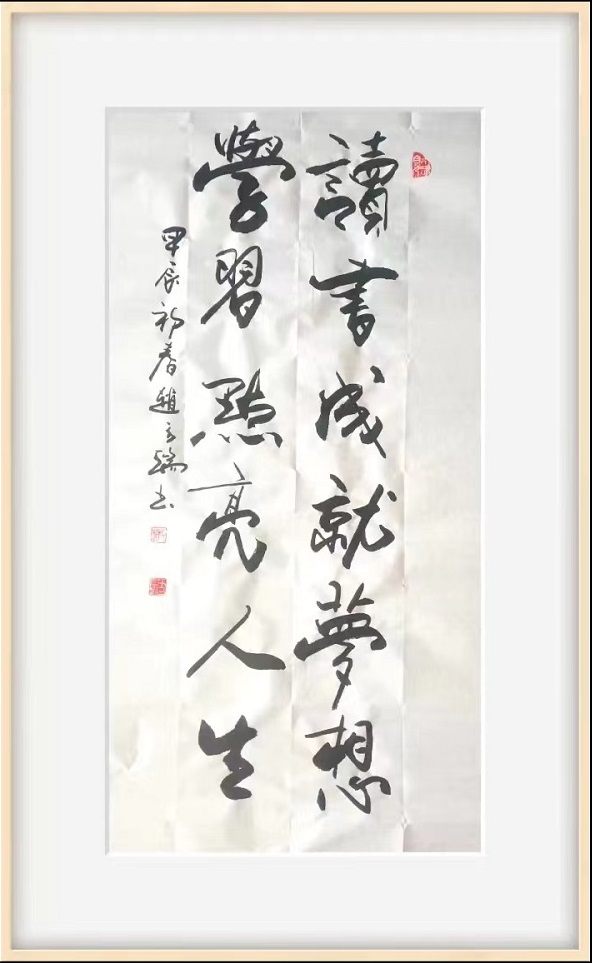 讀書成就夢想
學習點亮人生
甲辰初春趙言瑞书